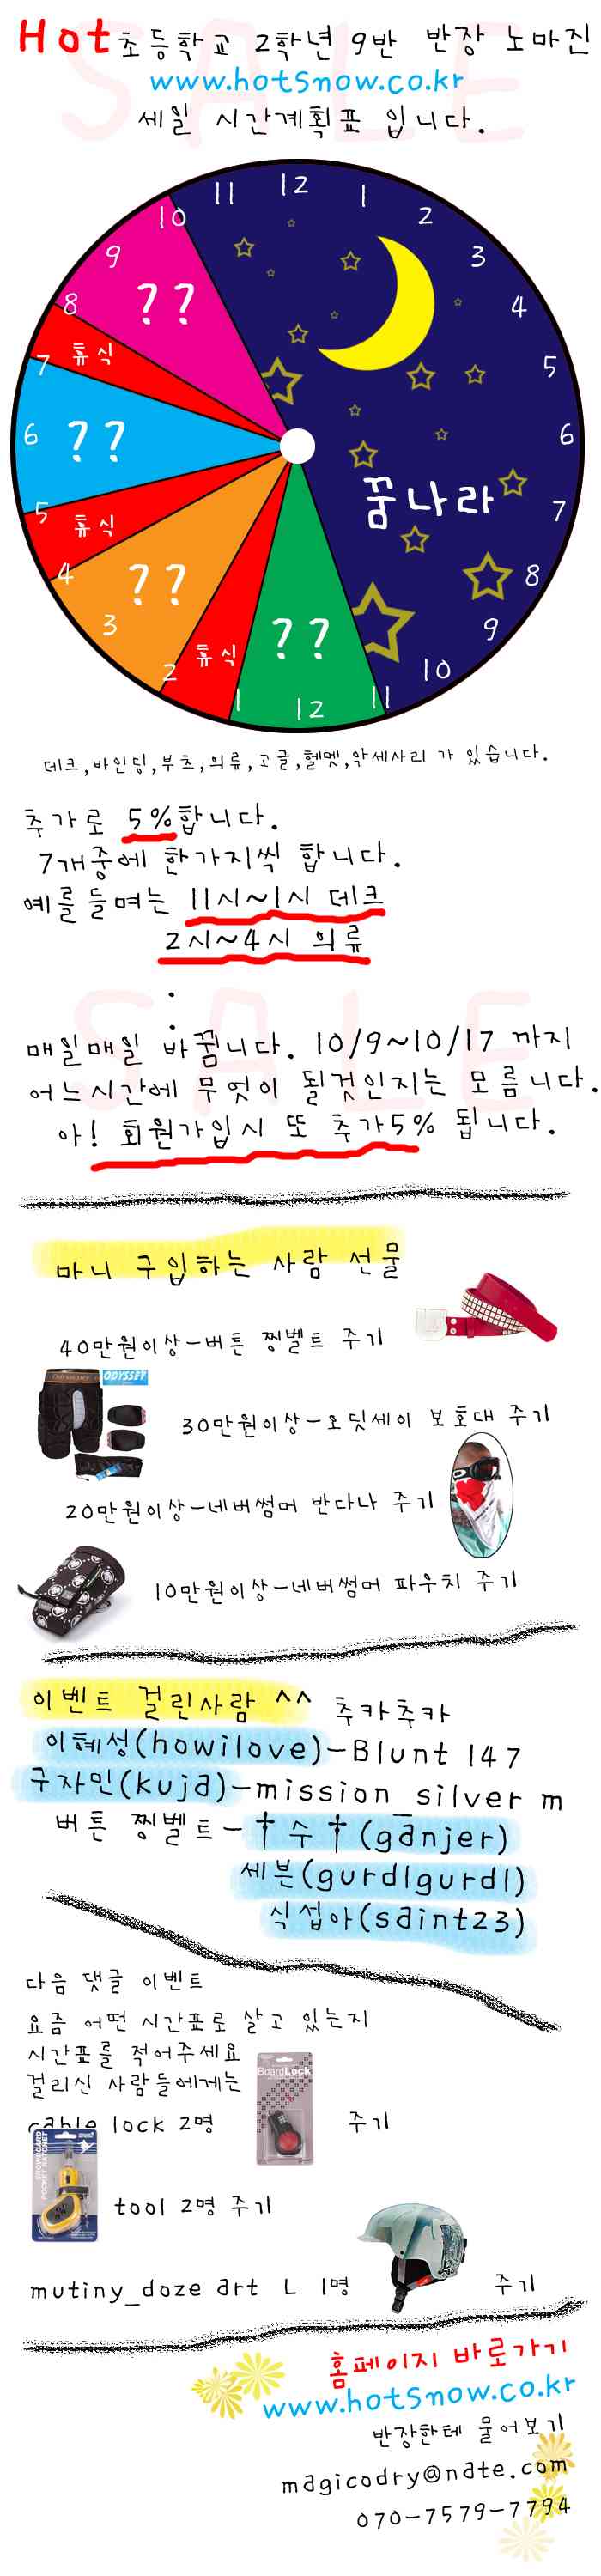 SALE
Hot 초등학교 2학년 9반 반장 노마진
www.hotsnow.co.kr
세일 시간계획표 입니다.
11 12 1
10 2
9 3
?? 4
8
휴식
7 5
6 ?? 6
꿈나라
5 휴식 7
4 ?? 8
3 9
휴식 ??
2 10
1 12 11
데크,바인딩,부츠,의류,고글,헬멧,악세사리 가 있습니다.
추가로 5%합니다.
7개중에 한가지씩 합니다.
예를 들며는 11시~1시 데크
2시~4시 의류
.
.
SALE
매일매일 바뀝니다. 10/9~10/17 까지
어느시간에 무엇이 될것인지는 모릅니다.
아! 회원가입시 또 추가5% 됩니다.
마니 구입하는 사람 선물
40만원이상-버튼 찡벨트 주기
ODYSSEY
30만원이상-오딧세이 보호대 주기
20만원이상-네버썸머 반다나 주기
10만원이상-네버썸머 파우치 주기
이벤트 걸린사람 ^^ 추카추카
이혜성(howilove)-Blunt 147
구자민(kuja)-mission_silver m
버튼 찡벨트-†수†(ganjer)
세븐(gurdlgurdl)
식섭아(saint23)
다음 댓글 이벤트
요즘 어떤 시간표로 살고 있는지
시간표를 적어주세요
걸리신 사람들에게는
BoardLock
cable lock 2명 주기
SNOWBOARD
POCKET RATCHET
tool 2명 주기
mutiny_doze art L 1명 주기
홈페이지 바로가기
www.hotsnow.co.kr
반장한테 물어보기
magicodry@nate.com
070-7579-7794